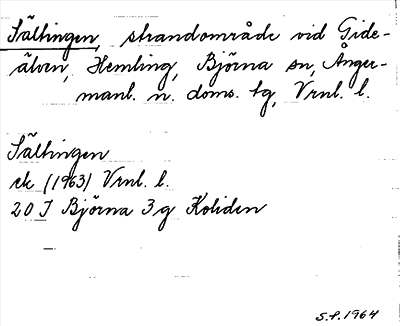 Sältingen, strandområde vid Gide-
älven, Hemling, Björna sn, Ånger-
manl. n. doms. tg, Vrnl. l.
Sältingen
ek (1963) Vrnl. l.
20 J Björna 3g Koliden
S.P. 1964